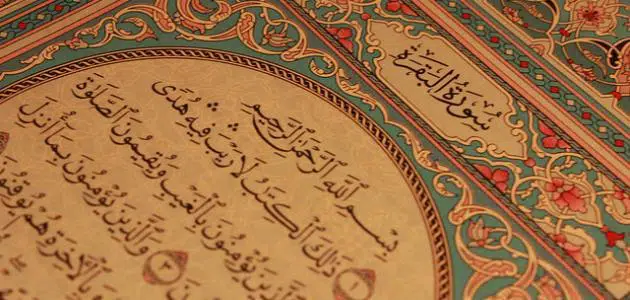 سُورَةُ الْبَقَرَةِ
بِسْمِ ٱللَّهِ ٱلرَّحْمَٰنِ ٱلرَّحِيمِ
١ ذَٰلِكَ ٱلْكِتَٰبُ لَا رَيْبَۛ فِيهِۛ هُدًى
ٱلَّذِينَ يُؤْمِنُونَ بِٱلْغَيْبِ وَيُقِيمُونَ ٱلصَّلَوٰةَ
٣ وَٱلَّذِينَ يُؤْمِنُونَ بِمَآ أُنزِلَ
وَبِٱلْءَاخِرَةِ هُمْ يُوقِنُونَ